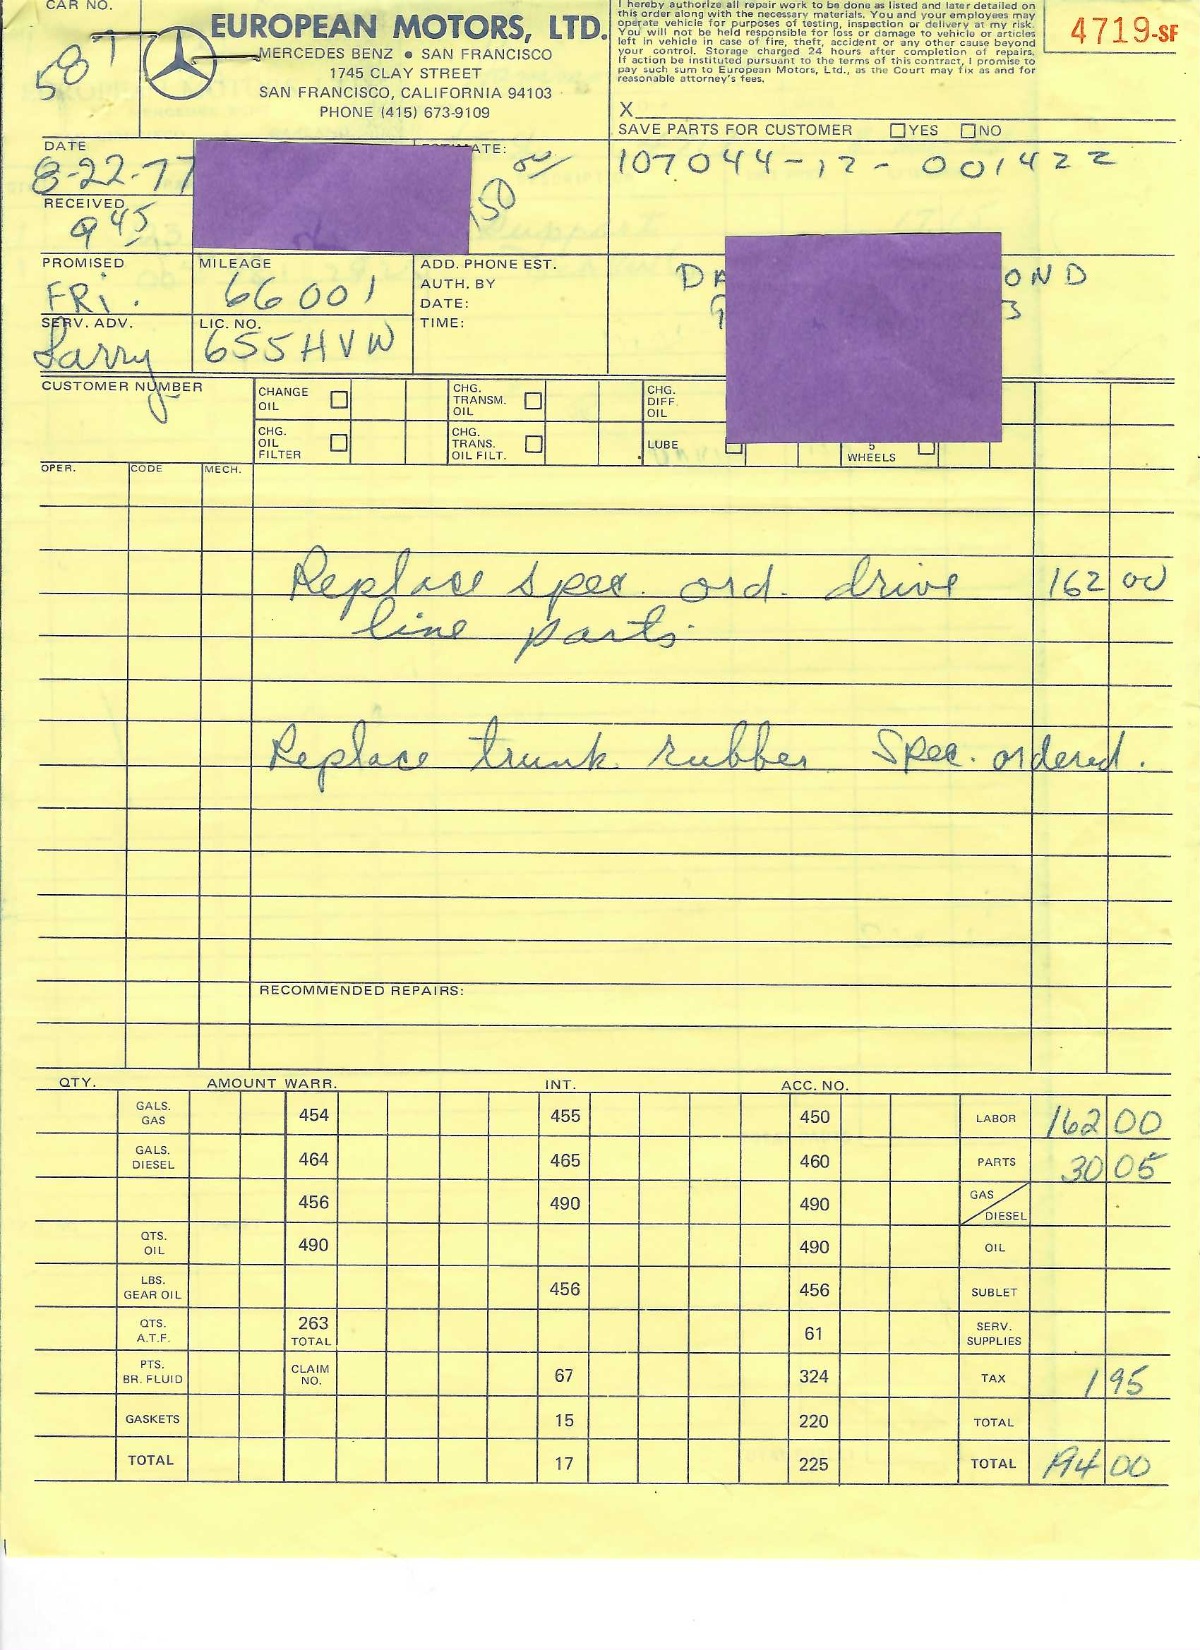 CAR NO.
587
EUROPEAN MOTORS, LTD.
MERCEDES BENZ • SAN FRANCISCO
1745 CLAY STREET
SAN FRANCISCO, CALIFORNIA 94103
PHONE (415) 673-9109
I hereby authorize all repair work to be done as listed and later detailed on
this order along with the necessary materials. You and your employees may
operate vehicle for purposes of testing, inspection or delivery at my risk.
You will not be held responsible for loss or damage to vehicle or articles
left in vehicle in case of fire, theft, accident or any other cause beyond
your control. Storage charged 24 hours after completion of repairs.
If action be instituted pursuant to the terms of this contract, I promise to
pay such sum to European Motors, Ltd., as the Court may fix as and for
reasonable attorney's fees.
4719-SF
X
SAVE PARTS FOR CUSTOMER YES NO
DATE
8-22-77
ATE:
150 00/
107044-12-001422
RECEIVED
9 45
PROMISED MILEAGE ADD. PHONE EST.
FRi. 66001 AUTH. BY
DATE:
DA OND
3
SERV. ADV. LIC. NO. TIME:
Larry 655HVW
CUSTOMER NUMBER
CHANGE OIL
CHG. TRANSM. OIL
CHG. DIFF. OIL
CHG. OIL FILTER
CHG. TRANS. OIL FILT.
LUBE
5 WHEELS
OPER. CODE MECH.
Replace spec. ord. drive 162 00
line parts.
Replace trunk rubber Spec. ordered.
RECOMMENDED REPAIRS:
QTY. AMOUNT WARR. INT. ACC. NO.
GALS. GAS 454 455 450 LABOR 162 00
GALS. DIESEL 464 465 460 PARTS 30 05
456 490 490 GAS / DIESEL
QTS. OIL 490 490 OIL
LBS. GEAR OIL 456 456 SUBLET
QTS. A.T.F. 263 TOTAL 61 SERV. SUPPLIES
PTS. BR. FLUID CLAIM NO. 67 324 TAX 1 95
GASKETS 15 220 TOTAL
TOTAL 17 225 TOTAL 194 00